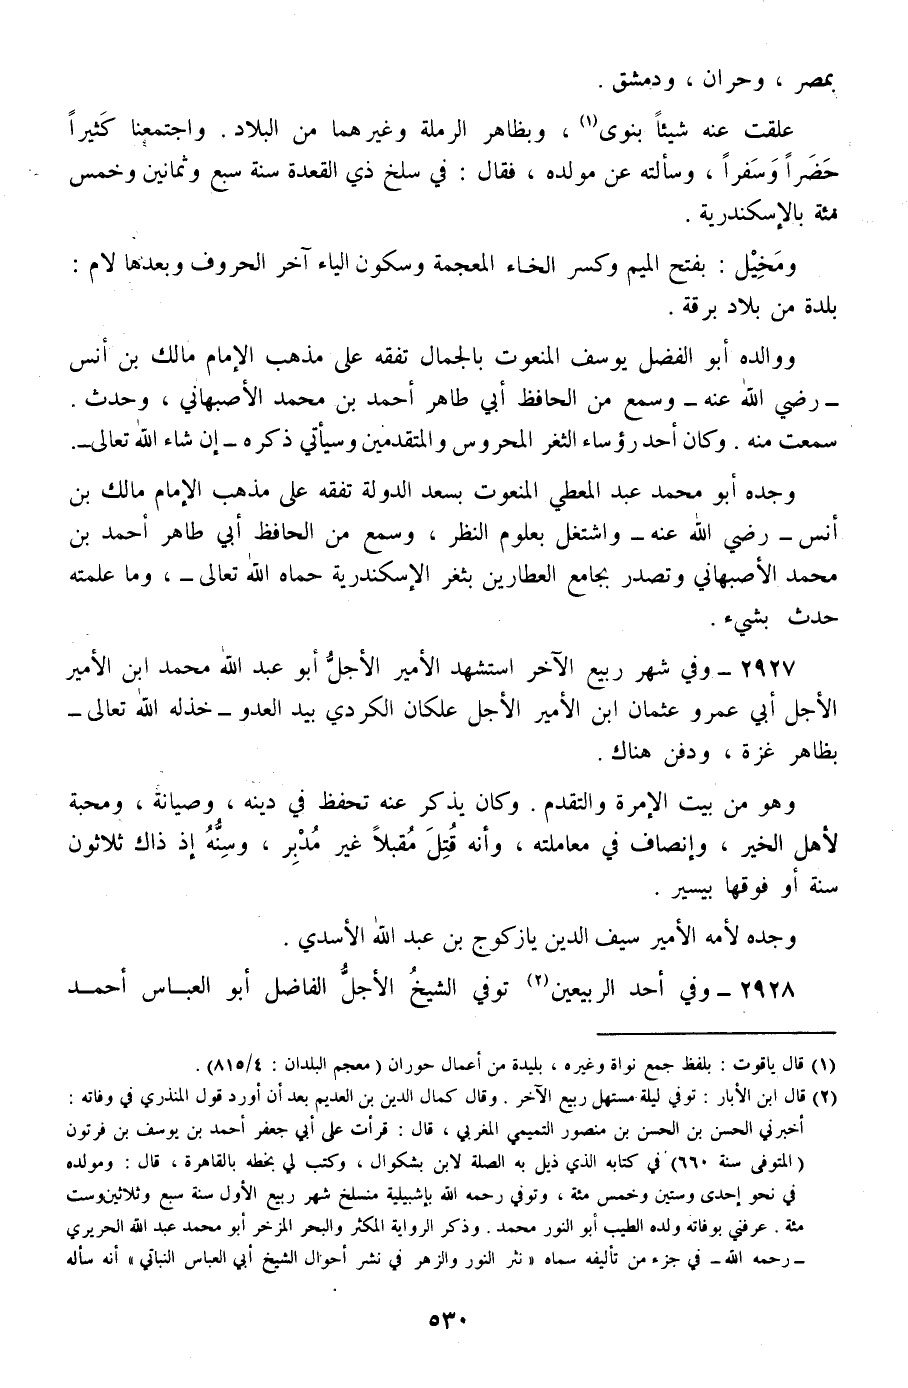 بمصر ، وحران ، ودمشق .
علقت عنه شيئاً بنوى(١) ، وبظاهر الرملة وغيرهما من البلاد . واجتمعنا كَثيراً
حَضَراً وَسَفراً ، وسألته عن مولده ، فقال : في سلخ ذي القعدة سنة سبع وثمانين وخمس
مئة بالإسكندرية .
ومَخِيْل : بفتح الميم وكسر الخاء المعجمة وسكون الياء آخر الحروف وبعدها لام :
بلدة من بلاد برقة .
ووالده أبو الفضل يوسف المنعوت بالجمال تفقه على مذهب الإمام مالك بن أنس
ـ رضي الله عنه ـ وسمع من الحافظ أبي طاهر أحمد بن محمد الأصبهاني ، وحدث .
سمعت منه . وكان أحد رؤساء الثغر المحروس والمتقدمين وسيأتي ذكره ـ إن شاء الله تعالى ـ.
وجده أبو محمد عبد المعطي المنعوت بسعد الدولة تفقه على مذهب الإمام مالك بن
أنس ـ رضي الله عنه ـ واشتغل بعلوم النظر ، وسمع من الحافظ أبي طاهر أحمد بن
محمد الأصبهاني وتصدر بجامع العطارين بثغر الإسكندرية حماه الله تعالى ـ ، وما علمته
حدث بشيء .
٢٩٢٧ ـ وفي شهر ربيع الآخر استشهد الأمير الأجلُّ أبو عبد الله محمد ابن الأمير
الأجل أبي عمرو عثمان ابن الأمير الأجل علكان الكردي بيد العدو ـ خذله الله تعالى ـ
بظاهر غزة ، ودفن هناك .
وهو من بيت الإمرة والتقدم . وكان يذكر عنه تحفظ في دينه ، وصيانة ، ومحبة
لأهل الخير ، وإنصاف في معاملته ، وأنه قُتِلَ مُقبلاً غير مُدْبِر ، وسِنُّهُ إذ ذاك ثلاثون
سنة أو فوقها بيسير .
وجده لأمه الأمير سيف الدين يازكوج بن عبد الله الأسدي .
٢٩٢٨ ـ وفي أحد الربيعين(٢) توفي الشيخُ الأجلُّ الفاضل أبو العباس أحمد
(١) قال ياقوت : بلفظ جمع نواة وغيره ، بليدة من أعمال حوران ( معجم البلدان : ٨١٥/٤) .
(٢) قال ابن الأبار : توفي ليلة مستهل ربيع الآخر . وقال كمال الدين بن العديم بعد أن أورد قول المنذري في وفاته :
أخبرني الحسن بن الحسن بن منصور التميمي المغربي ، قال : قرأت على أبي جعفر أحمد بن يوسف بن فرتون
( المتوفى سنة ٦٦٠) في كتابه الذي ذيل به الصلة لابن بشكوال ، وكتب لي بخطه بالقاهرة ، قال : ومولده
في نحو إحدى وستين وخمس مئة ، وتوفي رحمه الله بإشبيلية منسلخ شهر ربيع الأول سنة سبع وثلاثين وست
مئة . عرفني بوفاته ولده الطيب أبو النور محمد . وذكر الرواية المكثر والبحر المزخر أبو محمد عبد الله الحريري
ـ رحمه الله ـ في جزء من تأليفه سماه « نثر النور والزهر في نشر أحوال الشيخ أبي العباس النباتي » أنه سأله
٥٣٠